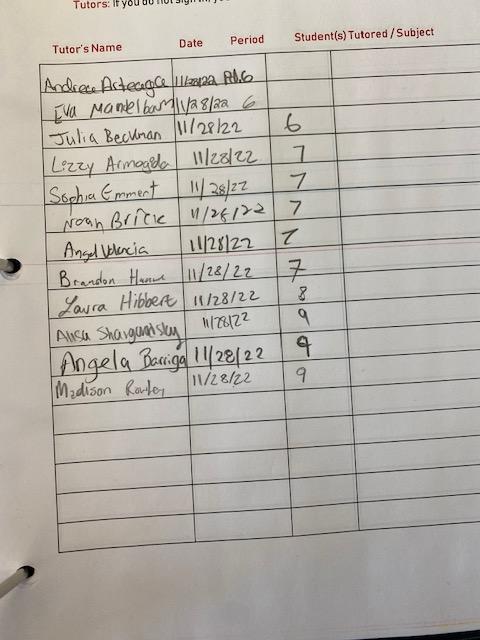 Tutors: If you do not sign in, you
Tutor's Name Date Period Student(s) Tutored / Subject
Andrea Arteaga 11/28/22 Pd.6
Eva Mandelbaum 11/28/22 6
Julia Beckman 11/28/22 6
Lizzy 11/28/22 7
Sophia Emment 11/28/22 7
Noah Brick 11/28/22 7
Angel Valencia 11/28/22 7
Brandon 11/28/22 7
Laura Hibbert 11/28/22 8
Alisa 11/28/22 9
Angela Barriga 11/28/22 9
Madison 11/28/22 9